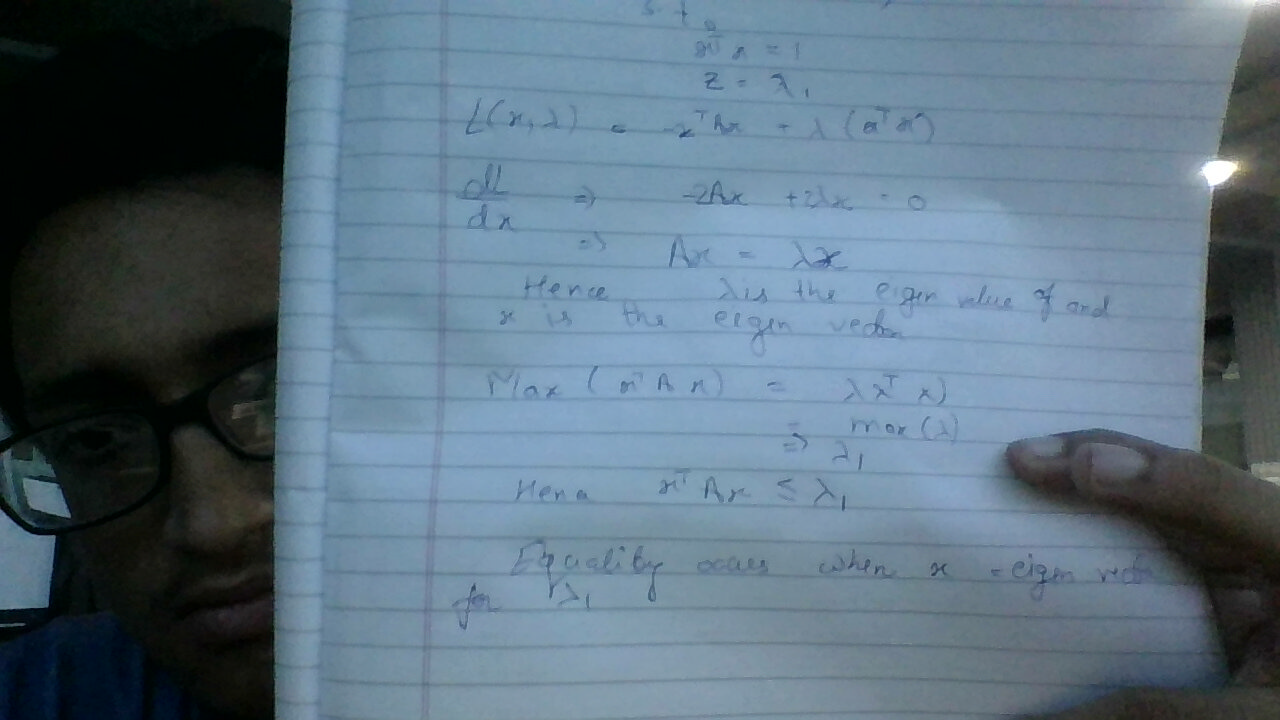 s.t.
xᵀx = 1
z = λ₁
L(x, λ) = -xᵀAx + λ(xᵀx)
dL/dx ⇒ -2Ax + 2λx = 0
⇒ Ax = λx
Hence λ is the eigen value of and
x is the eigen vector
Max (xᵀAx) = λxᵀx)
⇒ max(λ)
λ₁
Hence xᵀAx ≤ λ₁
Equality occurs when x = eigen vector
for λ₁